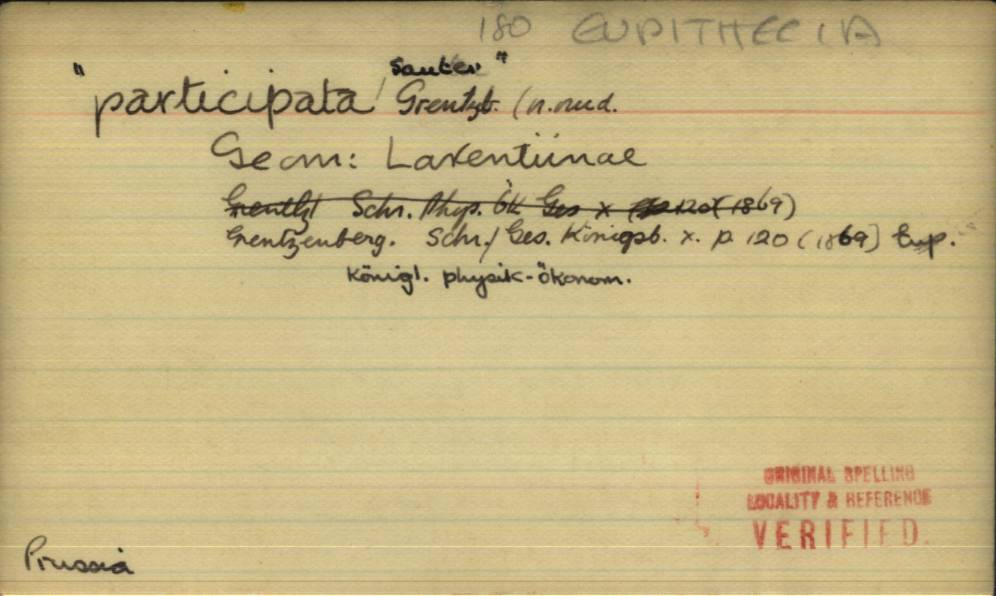 180 EUPITHECIA
"participata Sauter" Grentzb. (n.nud.
Geom: Larentiinae
Schr. Phys. Ök Ges x (p 120) (1869)
Grentzenberg. Schr. / Ges. Königsb. x. p 120 (1869) Eup.
königl. physik-ökonom.
ORIGINAL SPELLING
LOCALITY & REFERENCE
VERIFIED.
Prussia